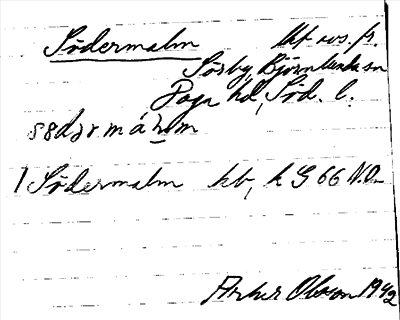 Södermalm lht avs. fr.
Sörby, Björnlunda sn
Daga hd, Söd. l.
södərmálm
1 Södermalm hb, k G 66 N.O.
Arthur Olsson 1942